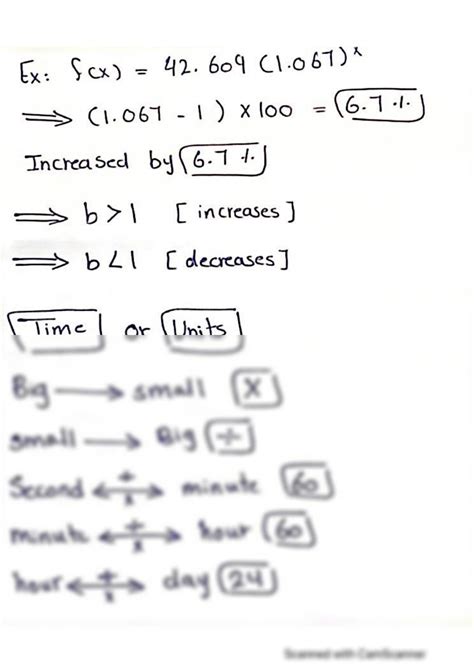 Ex: f(x) = 42.609 (1.067)^x
⟹ (1.067 - 1) × 100 = 6.7 %
Increased by 6.7 %
⟹ b > 1 [increases]
⟹ b < 1 [decreases]
Time or Units
Big ⟶ small ×
small ⟶ Big ÷
Second ⟵÷ ×⟶ minute 60
minute ⟵÷ ×⟶ hour 60
hour ⟵÷ ×⟶ day 24
Scanned with CamScanner